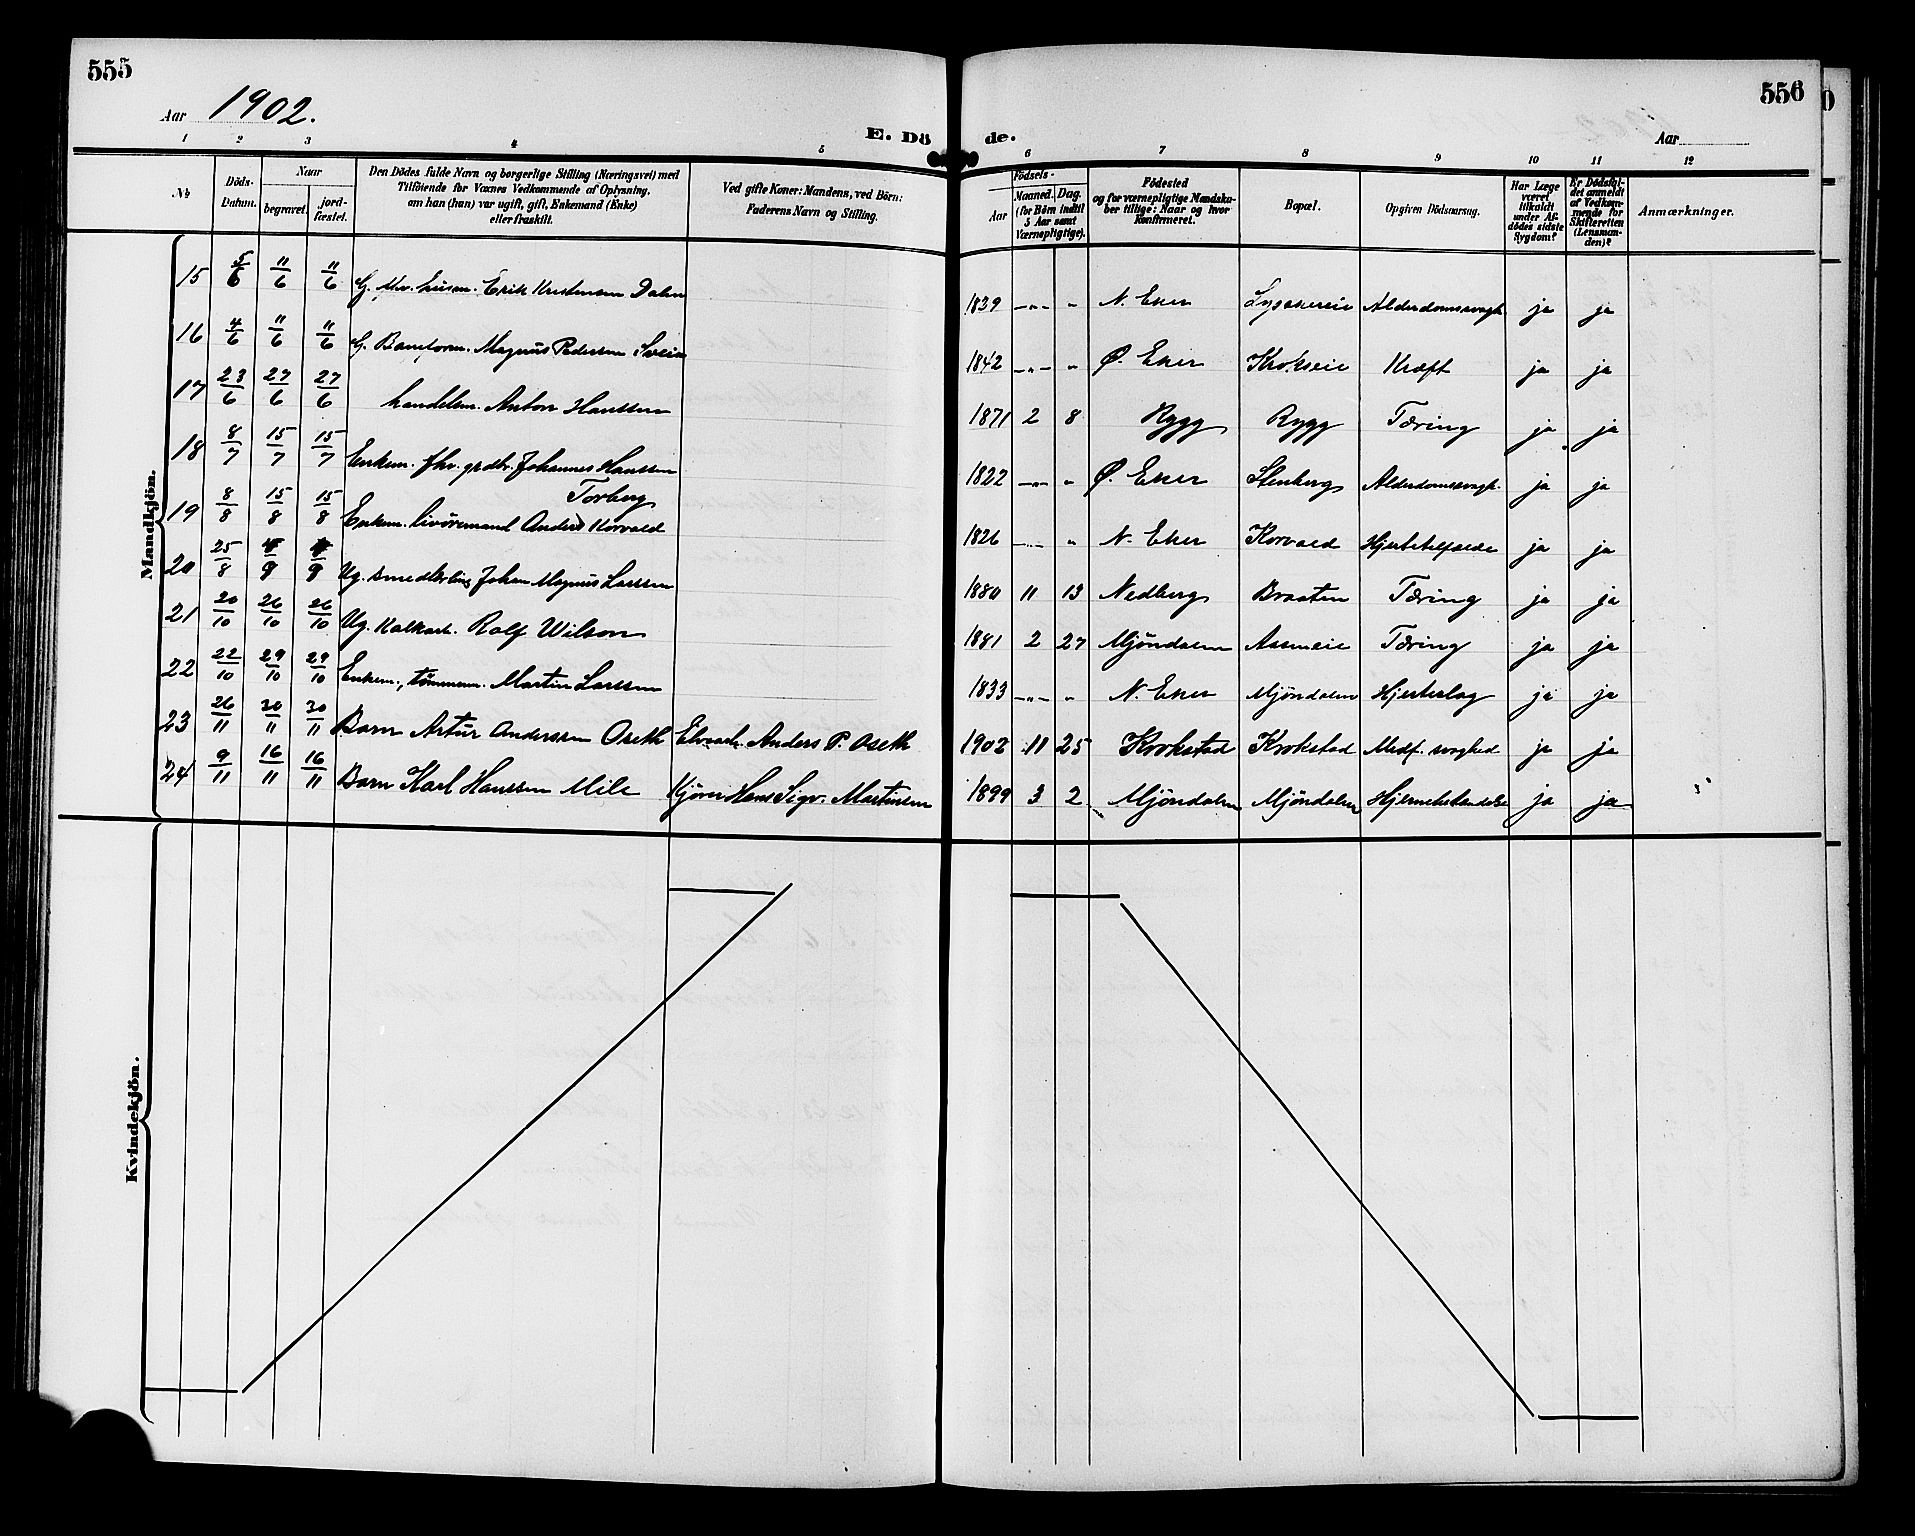 555
556
Aar 1902.
E. Dö de.
Aar
1 2 3 4 5 6 7 8 9 10 11 12
No
Döds-Datum.
Naar
begravet.
jord-fæstet.
Den Dödes fulde Navn og borgerlige Stilling (Næringsvei) med
Tilföiende for Voxnes Vedkommende af Oplysning,
om han (hun) var ugift, gift, Enkemand (Enke)
eller fraskilt.
Ved gifte Koner: Mandens, ved Börn:
Faderens Navn og Stilling.
Födsels-
Aar
Maaned. Dag.
(for Börn indtil
5 Aar samt
Værnepligtige).
Födested
og for værnepligtige Mandska-
ber tillige: Naar og hvor
Konfirmeret.
Bopæl.
Opgiven Dödsaarsag.
Har Læge
været
tilkaldt
under Af-
dödes sidste
Sygdom?
Er Dödsfal-
det anmeldt
af Vedkom-
mende for
Skifteretten
(Lensman-
den)?
Anmærkninger.
Mandkjön.
15 5/6 11/6 11/6 G. husm. Erik Kristensen Dalen 1839 —„— „ N. Eker Lysakereie Alderdomssvagh. ja ja
16 4/6 11/6 11/6 G. Baneform. Magnus Pedersen Svein 1842 —„— „ Ø. Eker Krokseie Kræft ja ja
17 23/6 27/6 27/6 handelsm. Anton Hanssen 1871 2 8 Rygg Rygg Tæring ja ja
18 8/7 15/7 15/7 Enkem. fhv. grdbr. Johannes Hanssen 1822 —„— „ Ø. Eker Stenberg Alderdomssvagh. ja ja
Torberg
19 8/8 15/8 15/8 Enkem. livöremand Anders Korvald 1826 —„— „ N. Eker Korvald Hjertetilfælde ja ja
20 25/8 /9 /9 Ug. smedlærling Johan Magnus Larssen 1880 11 13 Nedberg Braaten Tæring ja ja
21 20/10 26/10 26/10 Ug. Kalkarb. Rolf Wilson 1881 2 27 Mjöndalen Aasmeie Tæring ja ja
22 22/10 29/10 29/10 Enkem., tömmerm. Martin Larssen 1833 —„— „ N. Eker Mjöndalen Hjerteslag ja ja
23 26/11 30/11 30/11 Barn Artur Anderssen Oseth Elvearb. Anders P. Oseth 1902 11 25 Krokstad Krokstad Medf. svaghed ja ja
24 9/11 16/11 16/11 Barn Karl Hanssen Mile Kjörer Hans Sigv. Martinsen 1899 3 2 Mjöndalen Mjöndalen Hjernebetændelse ja ja
Kvindekjön.